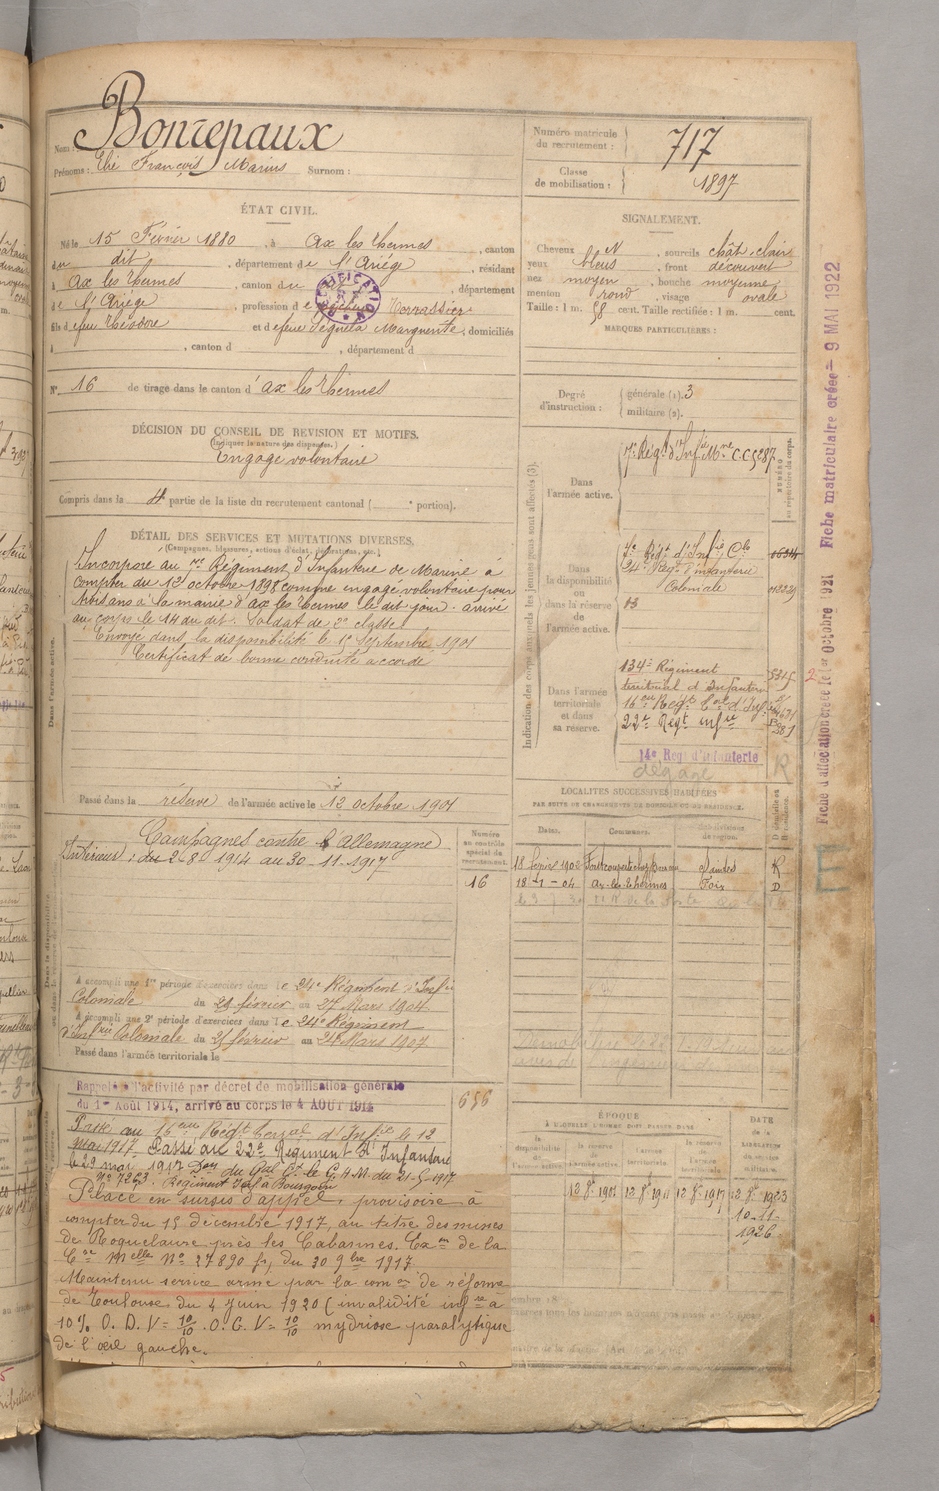 Nom : Bonrepaux
Prénoms : Elie François Marius Surnom :
Numéro matricule du recrutement : 717
Classe de mobilisation : 1897
ÉTAT CIVIL.
Né le 15 Février 1880, à Ax les Thermes, canton
du dit, département de l'Ariége, résidant
à Ax les Thermes, canton du, département
de l'Ariége, profession de Terrassier
fils de feu Théodore et de feue Séguéla Marguerite, domiciliés
à , canton d , département d
N° 16 de tirage dans le canton d'Ax les Thermes
DÉCISION DU CONSEIL DE REVISION ET MOTIFS.
(Indiquer la nature des dispenses.)
Engagé volontaire
Compris dans la 4e partie de la liste du recrutement cantonal ( e portion).
SIGNALEMENT.
Cheveux N, sourcils chât. clair
yeux bleus, front découvert
nez moyen, bouche moyenne
menton rond, visage ovale
Taille : 1 m. 58 cent. Taille rectifiée : 1 m. cent.
MARQUES PARTICULIÈRES :
Degré d'instruction : générale (1). 3
militaire (2).
DÉTAIL DES SERVICES ET MUTATIONS DIVERSES.
(Campagnes, blessures, actions d'éclat, décorations, etc.)
Incorporé au 7e Régiment d'Infanterie de Marine à
compter du 12 octobre 1898 comme engagé volontaire pour
trois ans à la mairie d'Ax les Thermes le dit jour. arrivé
au corps le 14 du dit. Soldat de 2e classe.
Envoyé dans la disponibilité le 1er Septembre 1901
Certificat de bonne conduite accordé
Passé dans la réserve de l'armée active le 12 octobre 1901
Indication des corps auxquels les jeunes gens sont affectés (3).
NUMÉRO au répertoire du corps.
Dans l'armée active.
7e Régt d'Infie Mne
Dans la disponibilité ou dans la réserve de l'armée active.
24e Régt d'infanterie
Coloniale
Dans l'armée territoriale et dans sa réserve.
134e Régiment
territorial d'Infanterie
22e Régt Infie
14e Régt d'infanterie
dégagé
R
LOCALITÉS SUCCESSIVES HABITÉES
PAR SUITE DE CHANGEMENTS DE DOMICILE OU DE RÉSIDENCE.
Dates. Communes. Subdivisions de région. Domicile ou Résidence.
R
18-1-04 Ax-les-Thermes Foix D
Campagnes contre l'Allemagne
Intérieur : du 2-8-1914 au 30-11-1917
Numéro au contrôle spécial du recrutement.
16
A accompli une 1re période d'exercices dans le 24e Régiment d'Infie
Coloniale du 29 février au 27 Mars 1904
A accompli une 2e période d'exercices dans le 24e Régiment
d'Infrie Coloniale du 25 février au 24 Mars 1907
Passé dans l'armée territoriale le
Rappelé à l'activité par décret de mobilisation générale
du 1er Août 1914, arrivé au corps le 4 AOUT 1914
656
Passé au 16eme Régt Terral d'Infie le 12
Mai 1917. Passé au 22e Régiment d'Infanterie
le 29 mai 1917 Don du Gal Ct le G.A.M. du 21-5-1917
N° 7263. Régiment Inf à Bourgoin
Placé en sursis d'appel, provisoire à
compter du 15 décembre 1917, au titre des mines
de Roquelaure près les Cabannes. Exon de la
Cre Melle N° 27890 fr, du 30 9bre 1917
Maintenu service armé par la comon de réforme
de Toulouse du 4 Juin 1920 (invalidité infre à
10%. O. D. V = 10/10 . O. G. V = 10/10 mydriase paralytique
de l'œil gauche.
ÉPOQUE
À LAQUELLE L'HOMME DOIT PASSER DANS :
la disponibilité de l'armée active. la réserve de l'armée active. l'armée territoriale. la réserve de l'armée territoriale.
DATE de la LIBÉRATION DU service militaire.
12 8e 1901 12 8e 1911 12 8e 1917 12 8e 1923
10-11-
1926
Fiche d'affectation créée le 1er octobre 1921 Fiche matriculaire créée - 9 MAI 1922